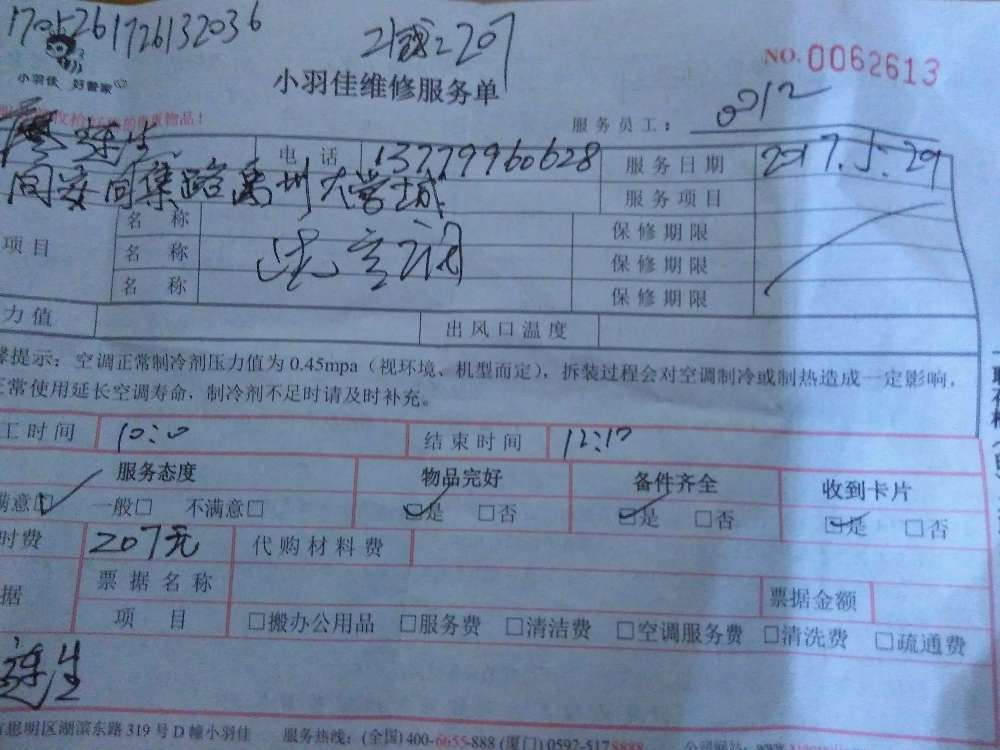 1705261726132036
207
NO. 0062613
小羽佳 好管家
小羽佳维修服务单
服务员工： 0012
连生 电话 13779960628 服务日期 2017.5.29
同安同集路禹州大学城 服务项目
项目 名称 保修期限
名称 洗空调 保修期限
名称 保修期限
力值 出风口温度
提示：空调正常制冷剂压力值为 0.45mpa（视环境、机型而定），拆装过程会对空调制冷或制热造成一定影响，
常使用延长空调寿命，制冷剂不足时请及时补充。
工时间 10:10 结束时间 12:10
服务态度 物品完好 备件齐全 收到卡片
满意☑ 一般□ 不满意□ ☑是 □否 ☑是 □否 ☑是 □否
时费 207元 代购材料费
据 票据名称 票据金额
项目 □搬办公用品 □服务费 □清洁费 □空调服务费 □清洗费 □疏通费
连生
思明区湖滨东路 319 号 D 幢小羽佳 服务热线：(全国) 400-6655-888 (厦门) 0592-5178888